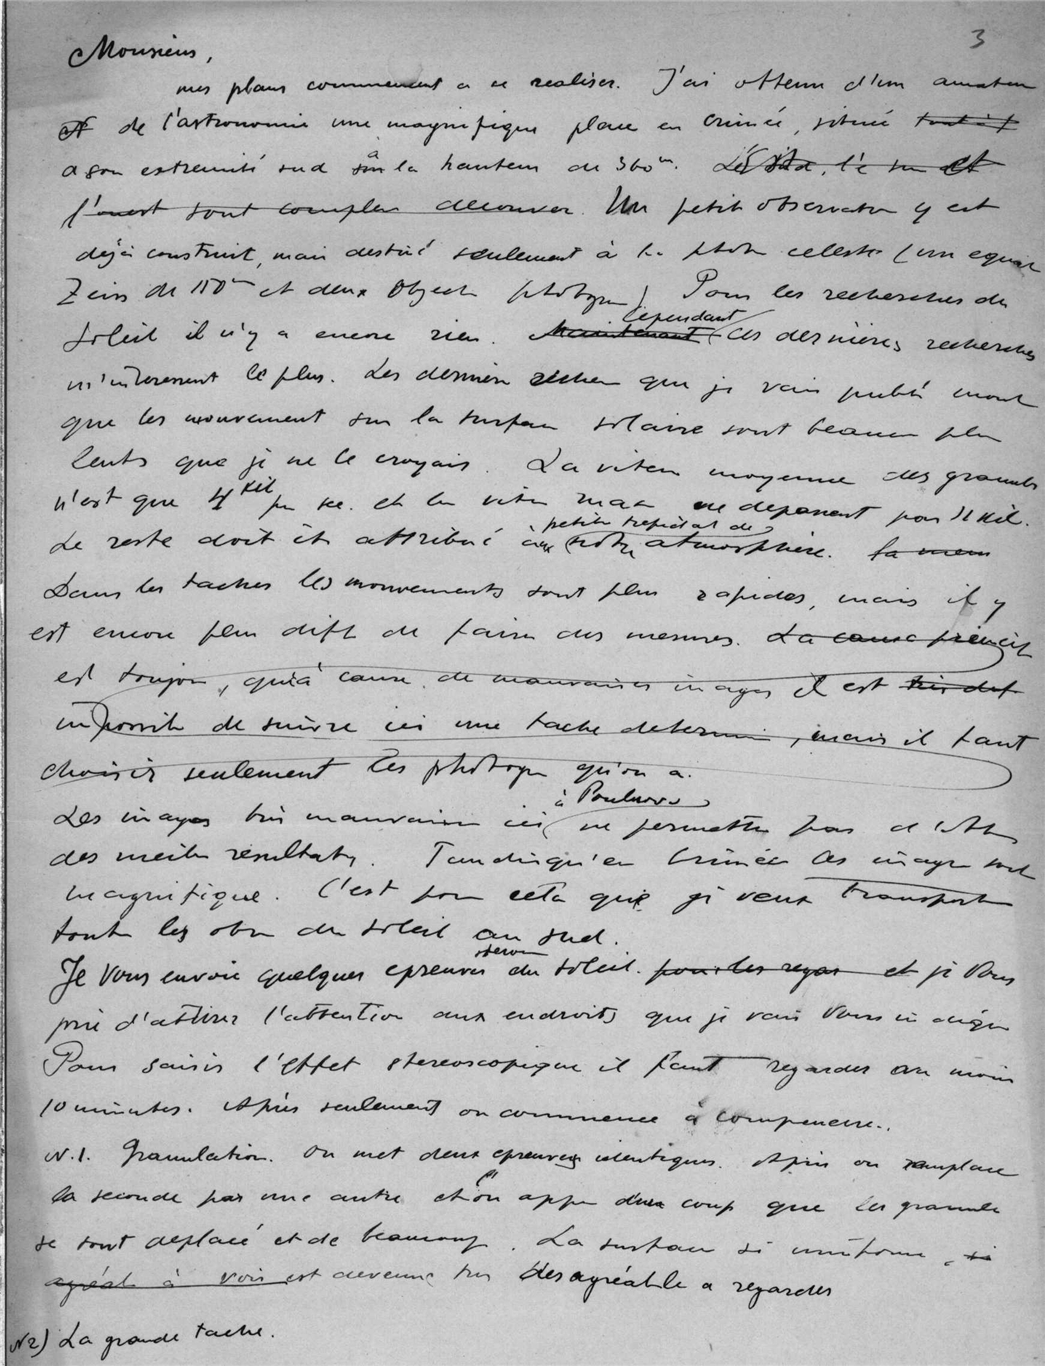 3
Monsieur,
mes plans commencent a se realiser. J'ai obtenu d'un amateur
de l'astronomie une magnifique place en Crimée, située tout à f
a son extremité sud à la hauteur de 360m. Le sud, l'e et
l'ouest sont complen decouver. Un petit observator y est
déjà construit, mais destiné seulement à la photo celeste (un equat
Zeiss de 110 et deux Object photogr) Pour les recherches du
Cependant
soleil il n'y a encore rien. Maintenant ces dernières recherches
m'interessent le plus. Les dernièr que je vais publié mont
que les mouvement sur la surface solaire sont beauc plu
lents que je ne le croyais. La vitess moyenne des granules
n'est que 4 kil pr sec. et la vites max ne depassent pas 11 kil.
petits trepidat de
Le reste doit êt attribué aux notre atmosphère. la meme
Dans les taches les mouvements sont plus rapides, mais il y
est encore plus diff de faire des mesures. La cause princip
est toujou, qu'à cause de mauvaises images il est très dif
impossib de suivre ici une tache determin, mais il faut
choisir seulement les photogr qu'on a.
à Poulkovo
Les images très mauvaises ici ne permettn pas d'obt
des meill résultats. Tandisqu'en Crimée les image sont
magnifique. C'est pour cela que je veux transport
toute les obs du soleil au sud.
stereo
Je Vous envoie quelques epreuves du soleil. pour les regar et je Vous
prie d'attirer l'attention aux endroits que je vais Vous indiqu
Pour saisir l'effet stereoscopique il faut regarder au moin
10 minutes. Après seulement on commence à comprendre.
N.1. Granulation. On met deux epreuves identiques. Après on remplace
la seconde par une autre et on app d'un coup que les granule
se sont deplacé et de beaucoup. La surface si uniforme, si
agréab à voir est devenue tres desagréable a regarder
N2) La grande tache.